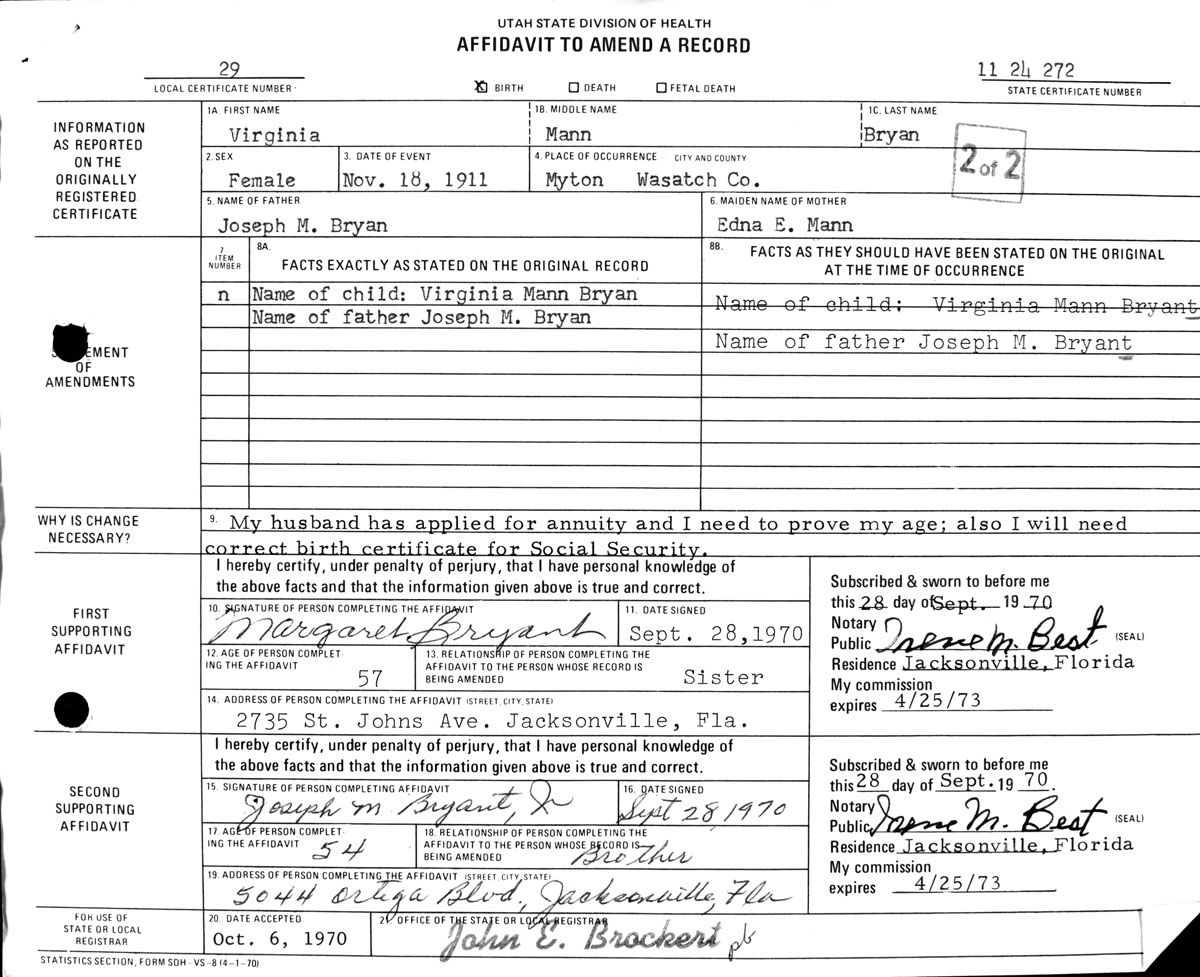 UTAH STATE DIVISION OF HEALTH
AFFIDAVIT TO AMEND A RECORD
29
LOCAL CERTIFICATE NUMBER
X BIRTH DEATH FETAL DEATH
11 24 272
STATE CERTIFICATE NUMBER
INFORMATION AS REPORTED ON THE ORIGINALLY REGISTERED CERTIFICATE
1A. FIRST NAME 1B. MIDDLE NAME 1C. LAST NAME
Virginia Mann Bryan
2 of 2
2. SEX 3. DATE OF EVENT 4. PLACE OF OCCURRENCE - CITY AND COUNTY
Female Nov. 18, 1911 Myton Wasatch Co.
5. NAME OF FATHER 6. MAIDEN NAME OF MOTHER
Joseph M. Bryan Edna E. Mann
7. ITEM NUMBER
8A. FACTS EXACTLY AS STATED ON THE ORIGINAL RECORD
8B. FACTS AS THEY SHOULD HAVE BEEN STATED ON THE ORIGINAL
AT THE TIME OF OCCURRENCE
n Name of child: Virginia Mann Bryan
Name of child: Virginia Mann Bryant
Name of father Joseph M. Bryan
Name of father Joseph M. Bryant
EMENT
OF
AMENDMENTS
WHY IS CHANGE
NECESSARY?
9. My husband has applied for annuity and I need to prove my age; also I will need
correct birth certificate for Social Security.
FIRST
SUPPORTING
AFFIDAVIT
I hereby certify, under penalty of perjury, that I have personal knowledge of
the above facts and that the information given above is true and correct.
10. SIGNATURE OF PERSON COMPLETING THE AFFIDAVIT 11. DATE SIGNED
Margaret Bryant Sept. 28,1970
12. AGE OF PERSON COMPLETING THE AFFIDAVIT
57
13. RELATIONSHIP OF PERSON COMPLETING THE
AFFIDAVIT TO THE PERSON WHOSE RECORD IS
BEING AMENDED Sister
14. ADDRESS OF PERSON COMPLETING THE AFFIDAVIT (STREET, CITY, STATE)
2735 St. Johns Ave. Jacksonville, Fla.
Subscribed & sworn to before me
this 28 day of Sept. 19 70
Notary
Public Irene M. Best (SEAL)
Residence Jacksonville, Florida
My commission
expires 4/25/73
SECOND
SUPPORTING
AFFIDAVIT
I hereby certify, under penalty of perjury, that I have personal knowledge of
the above facts and that the information given above is true and correct.
15. SIGNATURE OF PERSON COMPLETING AFFIDAVIT 16. DATE SIGNED
Joseph M Bryant, Jr Sept 28, 1970
17. AGE OF PERSON COMPLETING THE AFFIDAVIT 54
18. RELATIONSHIP OF PERSON COMPLETING THE
AFFIDAVIT TO THE PERSON WHOSE RECORD IS
BEING AMENDED Brother
19. ADDRESS OF PERSON COMPLETING THE AFFIDAVIT (STREET, CITY, STATE)
5044 Ortega Blvd, Jacksonville, Fla
Subscribed & sworn to before me
this 28 day of Sept. 19 70.
Notary
Public Irene M. Best (SEAL)
Residence Jacksonville, Florida
My commission
expires 4/25/73
FOR USE OF
STATE OR LOCAL
REGISTRAR
20. DATE ACCEPTED 21. OFFICE OF THE STATE OR LOCAL REGISTRAR
Oct. 6, 1970 John E. Brockert pb
STATISTICS SECTION, FORM SDH-VS-8 (4-1-70)